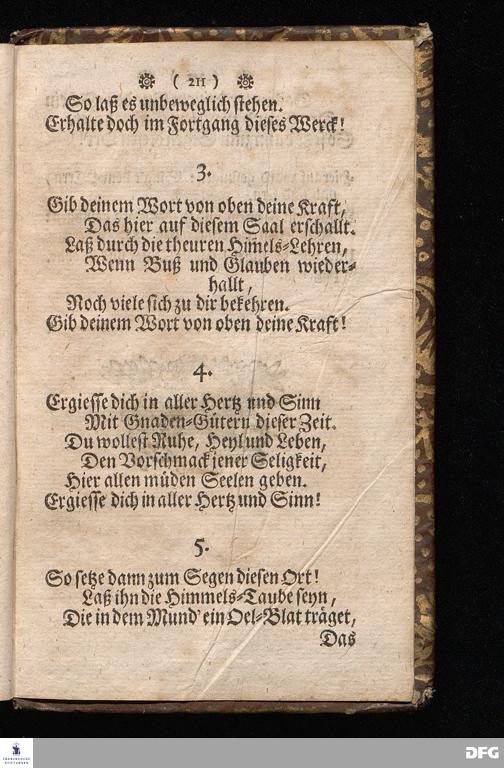 ( 211 )
So laß es unbeweglich stehen.
Erhalte doch im Fortgang dieses Werck!
3.
Gib deinem Wort von oben deine Kraft,
Das hier auf diesem Saal erschallt.
Laß durch die theuren Him̃els-Lehren,
Wenn Buß und Glauben wieder-
hallt,
Noch viele sich zu dir bekehren.
Gib deinem Wort von oben deine Kraft!
4.
Ergiesse dich in aller Hertz und Sinn
Mit Gnaden-Gütern dieser Zeit.
Du wollest Ruhe, Heyl und Leben,
Den Vorschmack jener Seligkeit,
Hier allen müden Seelen geben.
Ergiesse dich in aller Hertz und Sinn!
5.
So setze dann zum Segen diesen Ort!
Laß ihn die Himmels-Taube seyn,
Die in dem Mund ein Oel-Blat träget,
Das
FRANCKESCHE
STIFTUNGEN
DFG